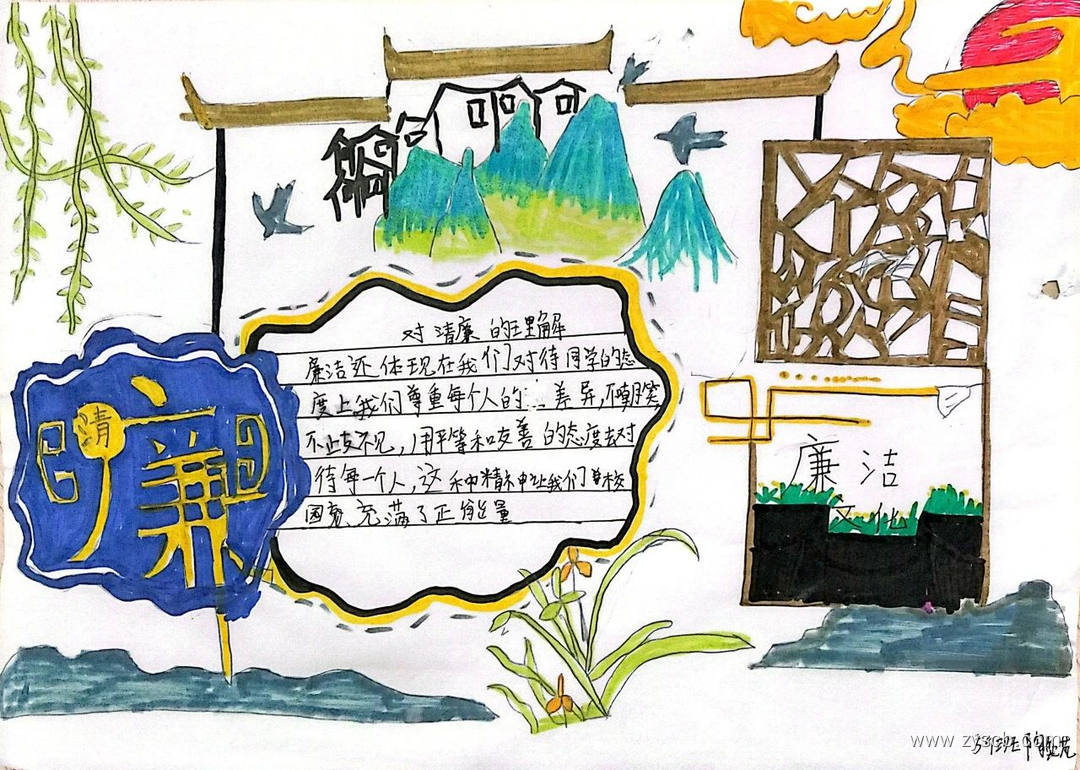 清
廉
对清廉的理解
廉洁还体现在我们对待同学的态
度上我们尊重每个人的差异,不嘲笑
不歧视,用平等和友善的态度去对
待每一个人,这种精神让我们学校
充满了正能量
廉洁
文化